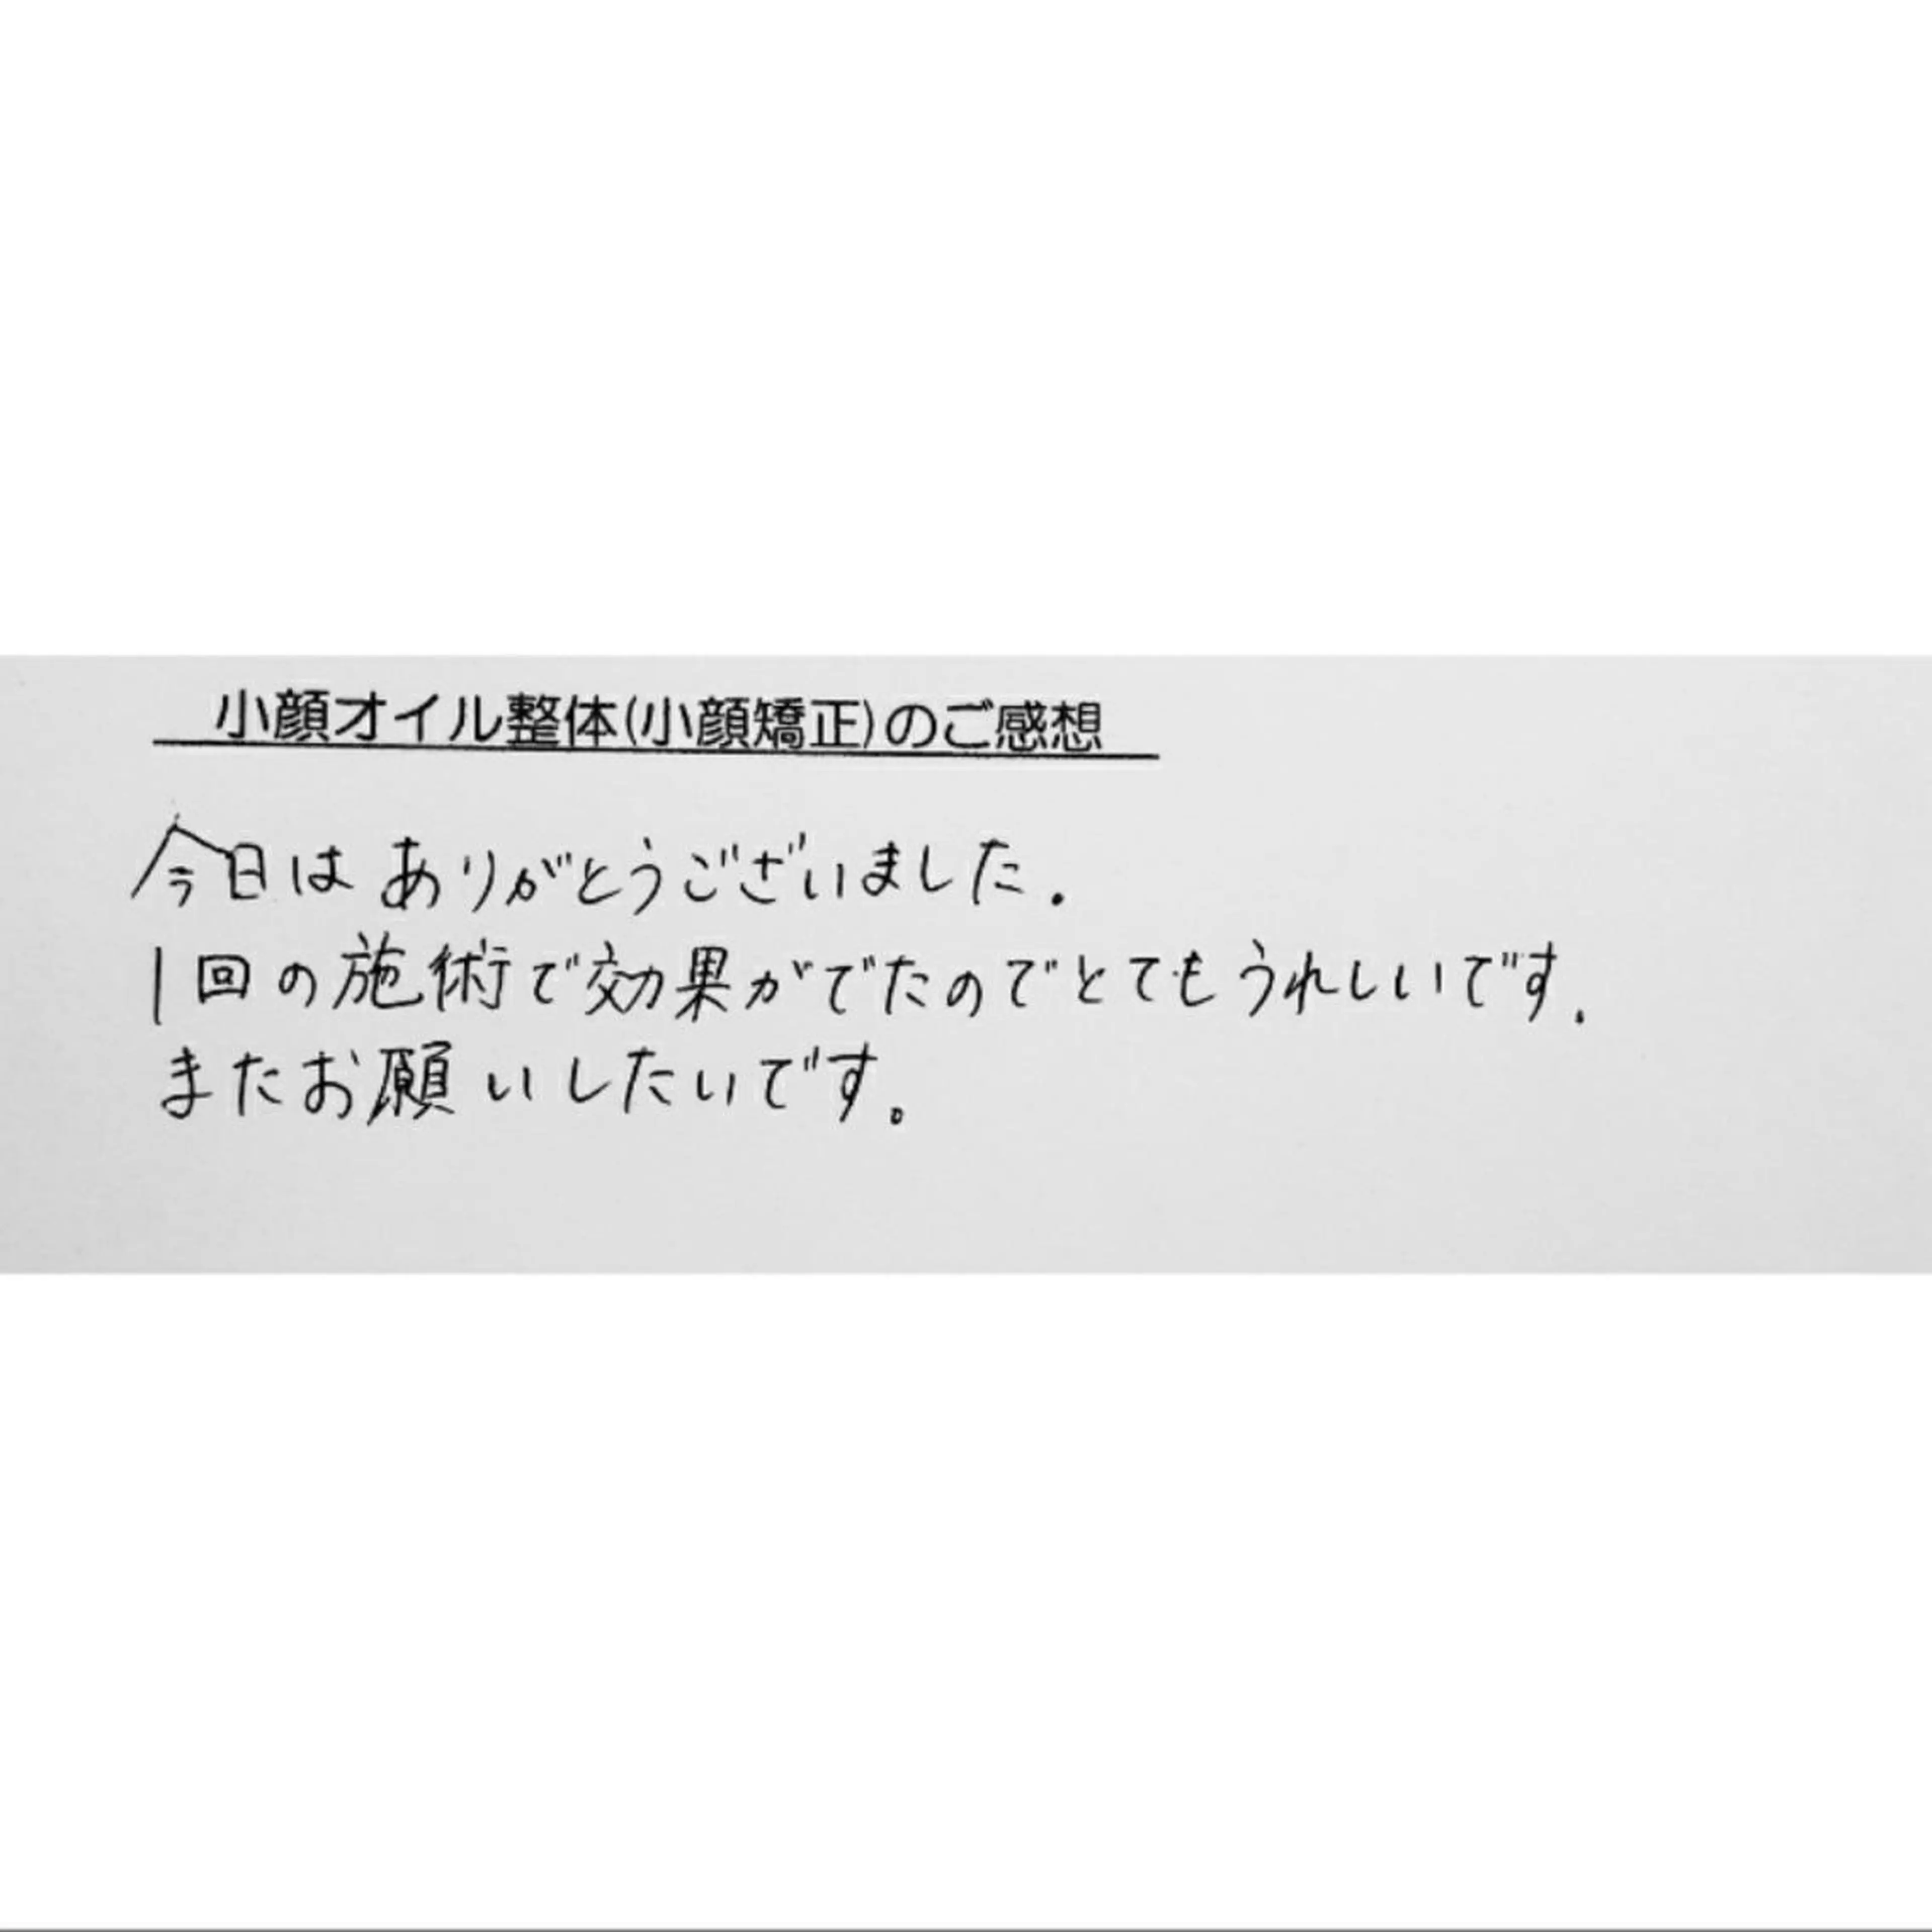 小顔オイル整体(小顔矯正)のご感想
今日はありがとうございました.
1回の施術で効果がでたのでとてもうれしいです.
またお願いしたいです。